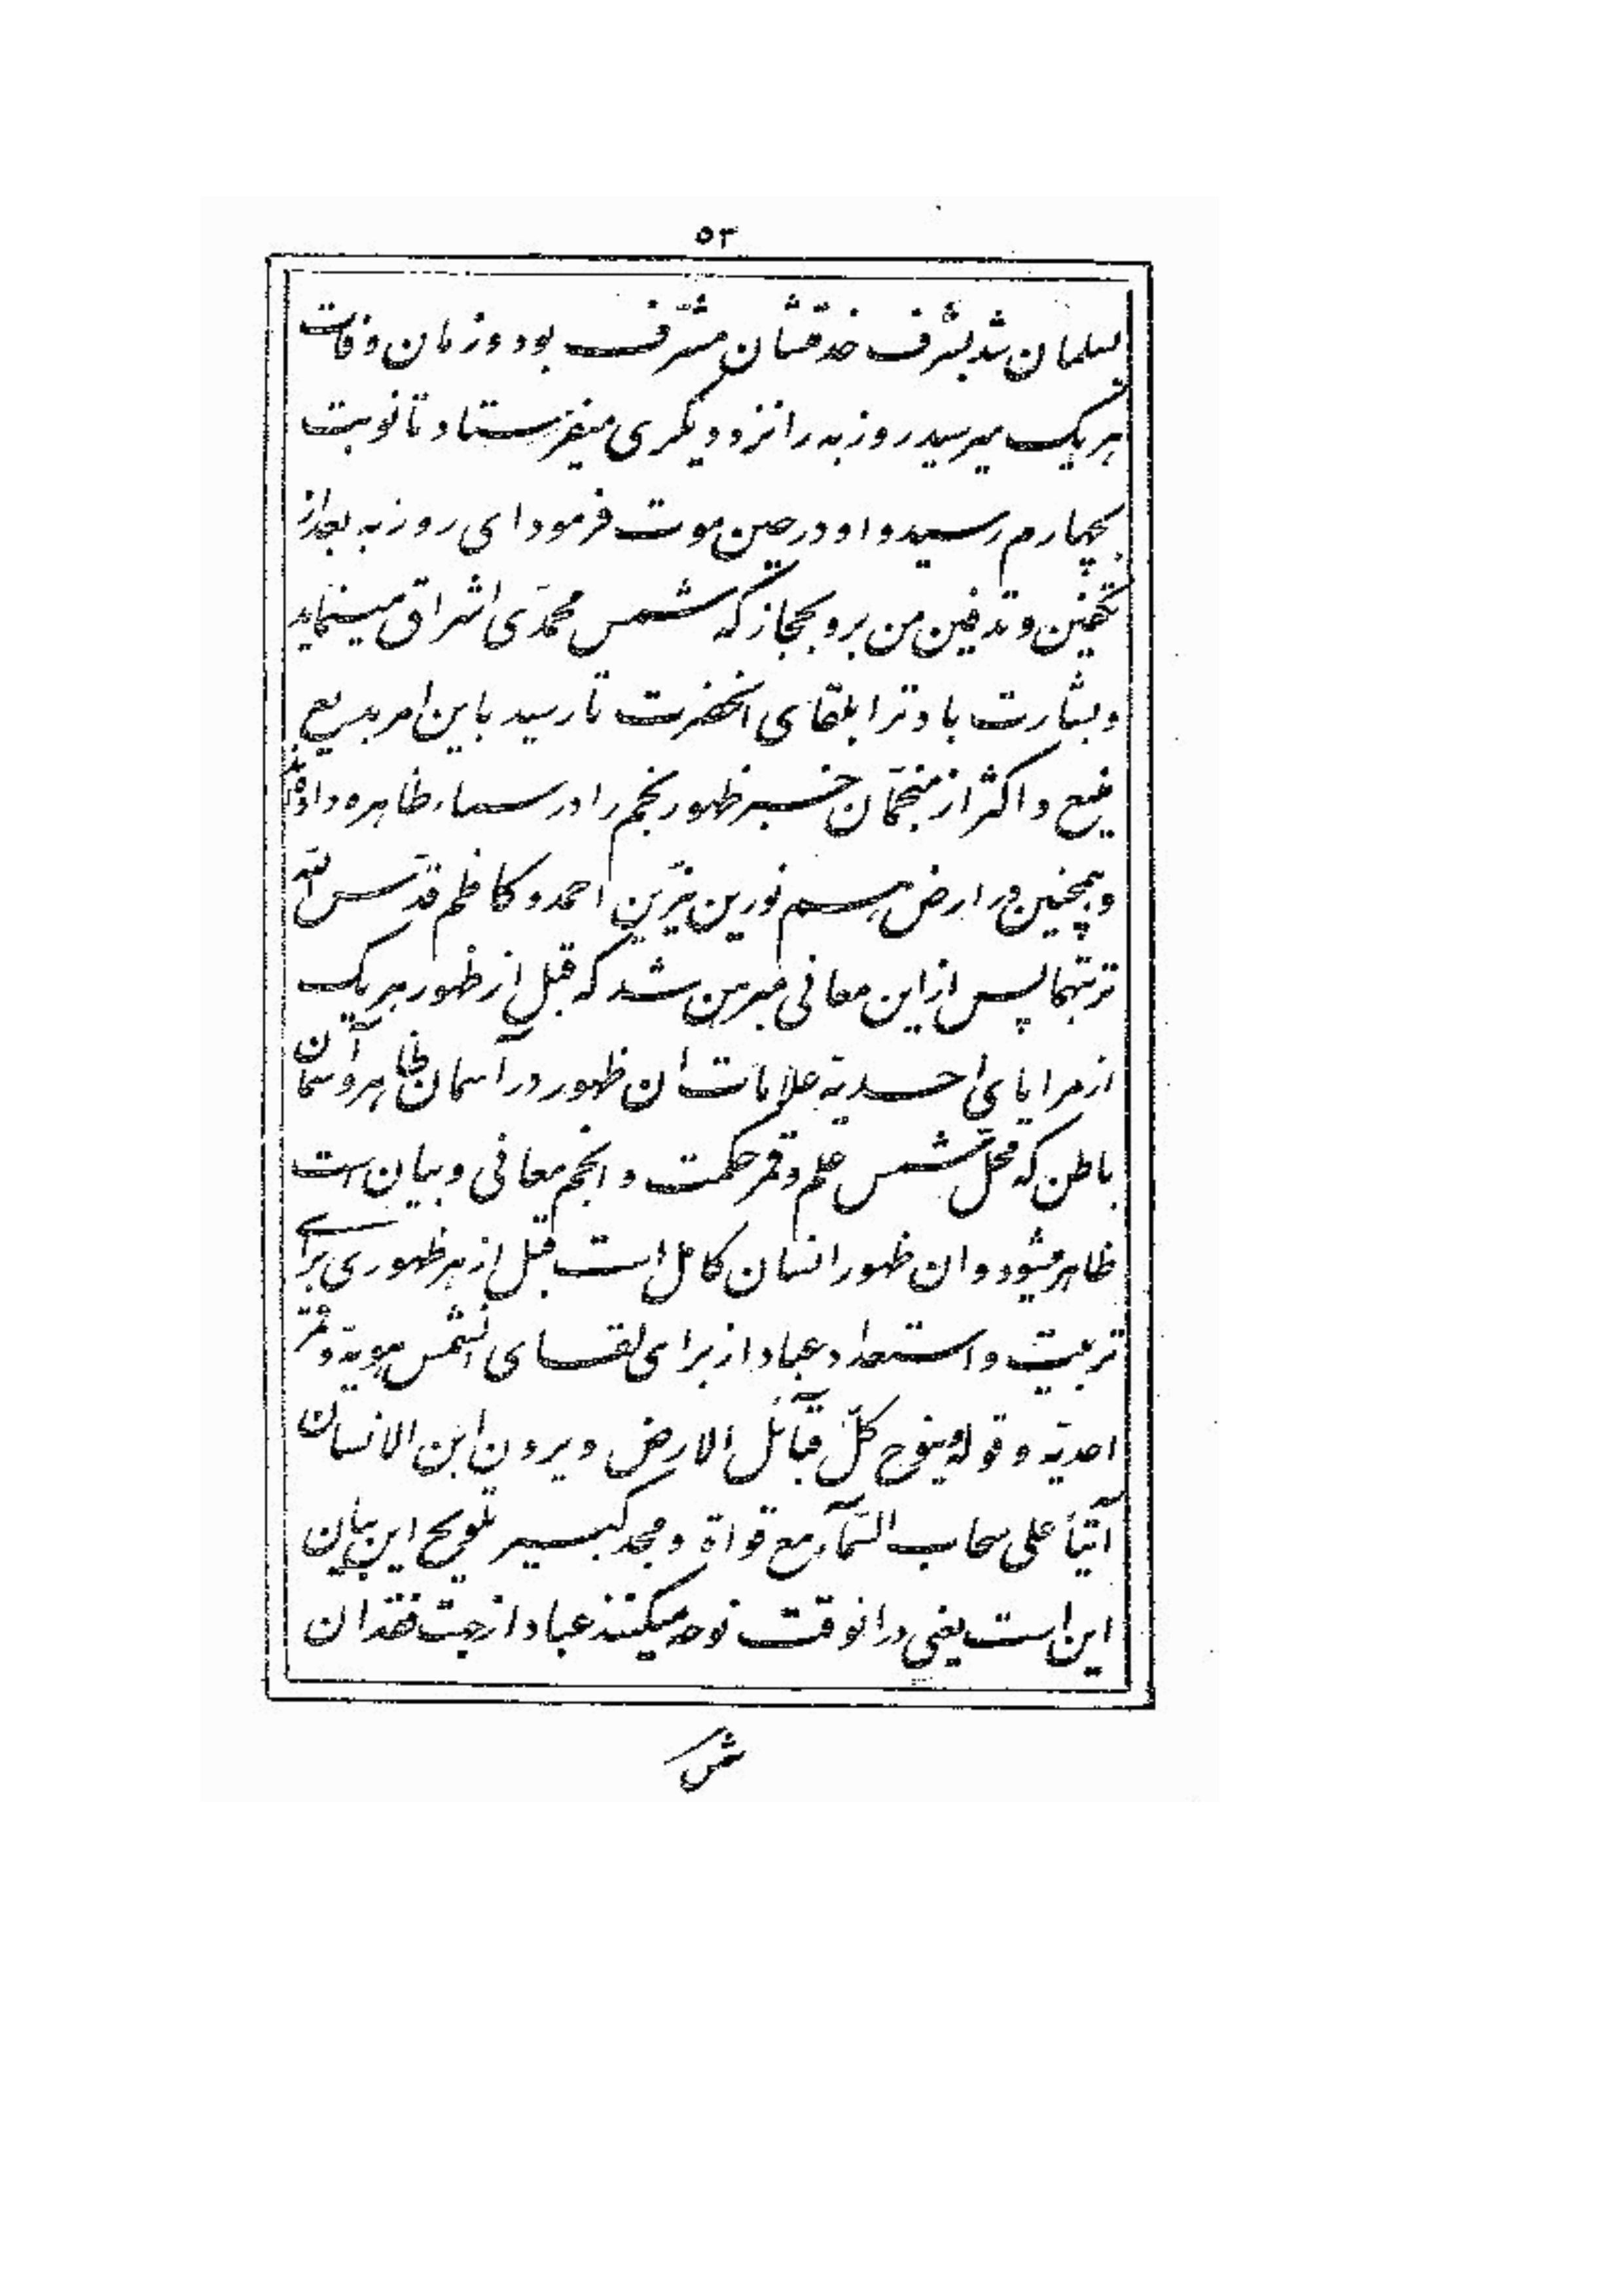 ٥٣
بسلمان شد بشرف خدمتشان مشرّف بود و زمان وفات
هر یک میرسید روزبه را نزد دیگری میفرستاد تا نوبت
بچهارم رسید و او در حین موت فرمود ای روزبه بعد از
تکفین و تدفین من برو بحجاز که شمس محمّدی اشراق مینماید
و بشارت باد ترا بلقای انحضرت تا رسید باین امر بدیع
منیع و اکثر از منجّمان خبر ظهور نجم را در سماء ظاهره داده‌اند
و همچنین در ارض هم نورین نیّرین احمد و کاظم قدّس الله
تربتهما پس از این معانی مبرهن شد که قبل از ظهور هر یک
از مرایای احدیه علامات ان ظهور در آسمان ظاهر و آسمان
باطن که محلّ شمس علم و قمر حکمت و انجم معانی و بیان است
ظاهر میشود و ان ظهور انسان کامل است قبل از هر ظهوری برای
تربیت و استعداد عباد از برای لقای انشمس هویّه و قمر
احدیّه و قوله و ینوح کلّ قبآئل الارض و یرون ابن الانسان
آتیاً علی سحاب السّمآء مع قواة و مجد کبیر تلویح این بیان
این است یعنی در انوقت نوحه میکنند عباد از جهت فقدان
شمس